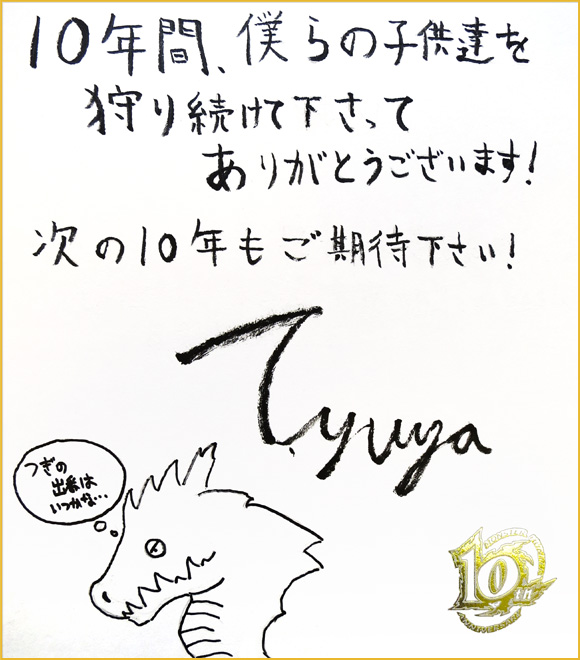 10年間、僕らの子供達を
狩り続けて下さって
ありがとうございます!
次の10年もご期待下さい!
Tyuya
つぎの
出番は
いつかな…
10th
ANNIVERSARY